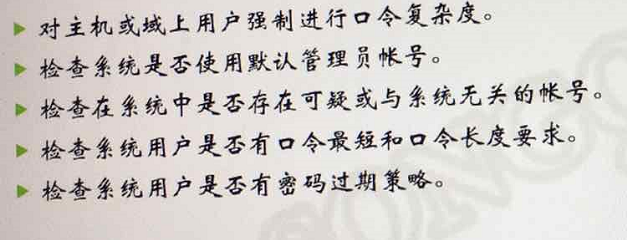 对主机或域上用户强制进行口令复杂度。
检查系统是否使用默认管理员帐号。
检查在系统中是否存在可疑或与系统无关的帐号。
检查系统用户是否有口令最短和口令长度要求。
检查系统用户是否有密码过期策略。